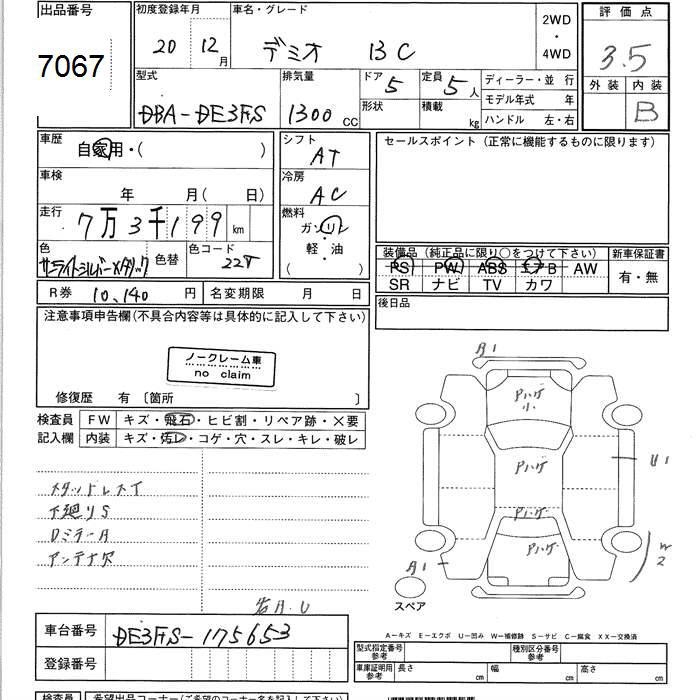 出品番号
7067
初度登録年月
20 12月
車名・グレード
デミオ 13C
2WD
・
4WD
評価点
3.5
外装 内装
B
型式
DBA-DE3FS
排気量
1300 CC
ドア 5
形状
定員 5人
積載 kg
ディーラー・並 行
モデル年式 年
ハンドル 左・右
車歴
自家用・( )
車検
年 月( 日)
走行
7万3千199 km
色
サンライトシルバーメタリック
色替
色コード
22V
シフト
AT
冷房
AC
燃料
ガソリン
軽・油
( )
セールスポイント(正常に機能するものに限ります)
装備品(純正品に限り○をつけて下さい)
PS PW ABS エアB AW
SR ナビ TV カワ
新車保証書
有・無
後日品
R券 10,140 円
名変期限 月 日
注意事項申告欄(不具合内容等は具体的に記入して下さい)
ノークレーム車
no claim
修復歴 有〔箇所 〕
検査員
記入欄
FW キズ・飛石・ヒビ割・リペア跡・×要
内装 キズ・汚レ・コゲ・穴・スレ・キレ・破レ
スタッドレスT
下廻りS
Dミラー A
アンテナ欠
A1
Pハゲ
小
Pハゲ
Pハゲ
Pハゲ
U1
W2
A1
スペア
車台番号
DE3FS-175653
登録番号
A-キズ E-エクボ U-凹み W-補修跡 S-サビ C-腐食 XX-交換済
型式指定番号
参考
種別区分番号
参考
車庫証明用
参考
長さ cm
幅 cm
高さ cm
検査員
希望出品コーナー(ご希望のコーナー名を記入して下さい)